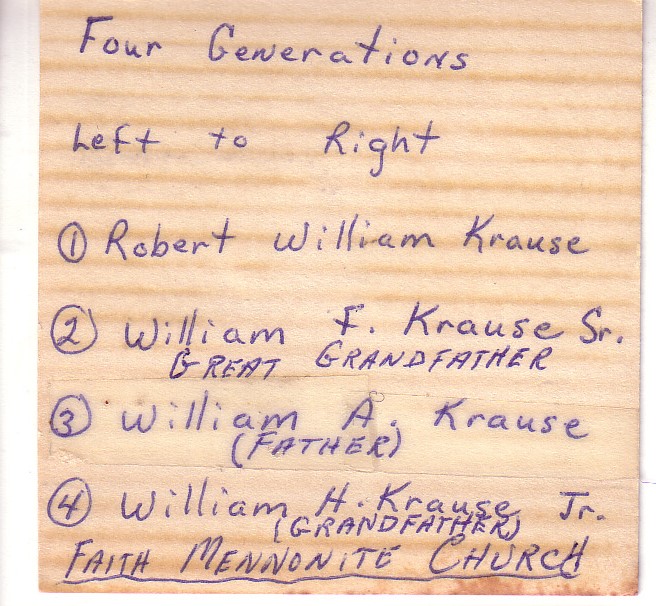 Four Generations
Left to Right
① Robert William Krause
② William F. Krause Sr.
GREAT GRANDFATHER
③ William A. Krause
(FATHER)
④ William H. Krause Jr.
(GRANDFATHER)
FAITH MENNONITE CHURCH